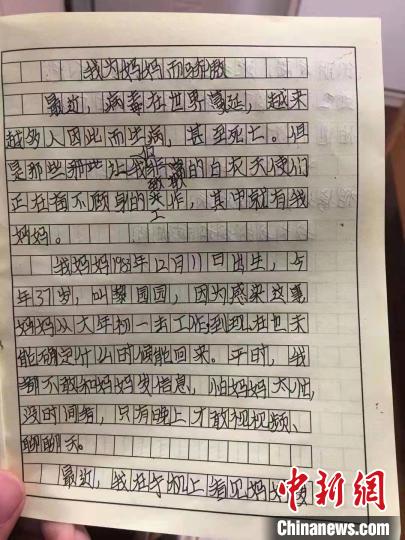 我为妈妈而骄傲
最近，病毒在世界蔓延，越来
越多人因此而生病，甚至死亡。但
是那些 让我 的白衣天使们
正在奋不顾身的 工作，其中就有我
妈妈。
我妈妈1983年12月11日出生，今
年37岁，叫黎园园，因为感染这事
妈妈从大年初一去工作，到现在也未
能确定什么时候能回来。平时，我
都不敢和妈妈发信息，怕妈妈太忙，
没时间看，只有晚上才敢视视频、
聊聊天。
最近，我在手机上看见妈妈
中新网
Chinanews.com